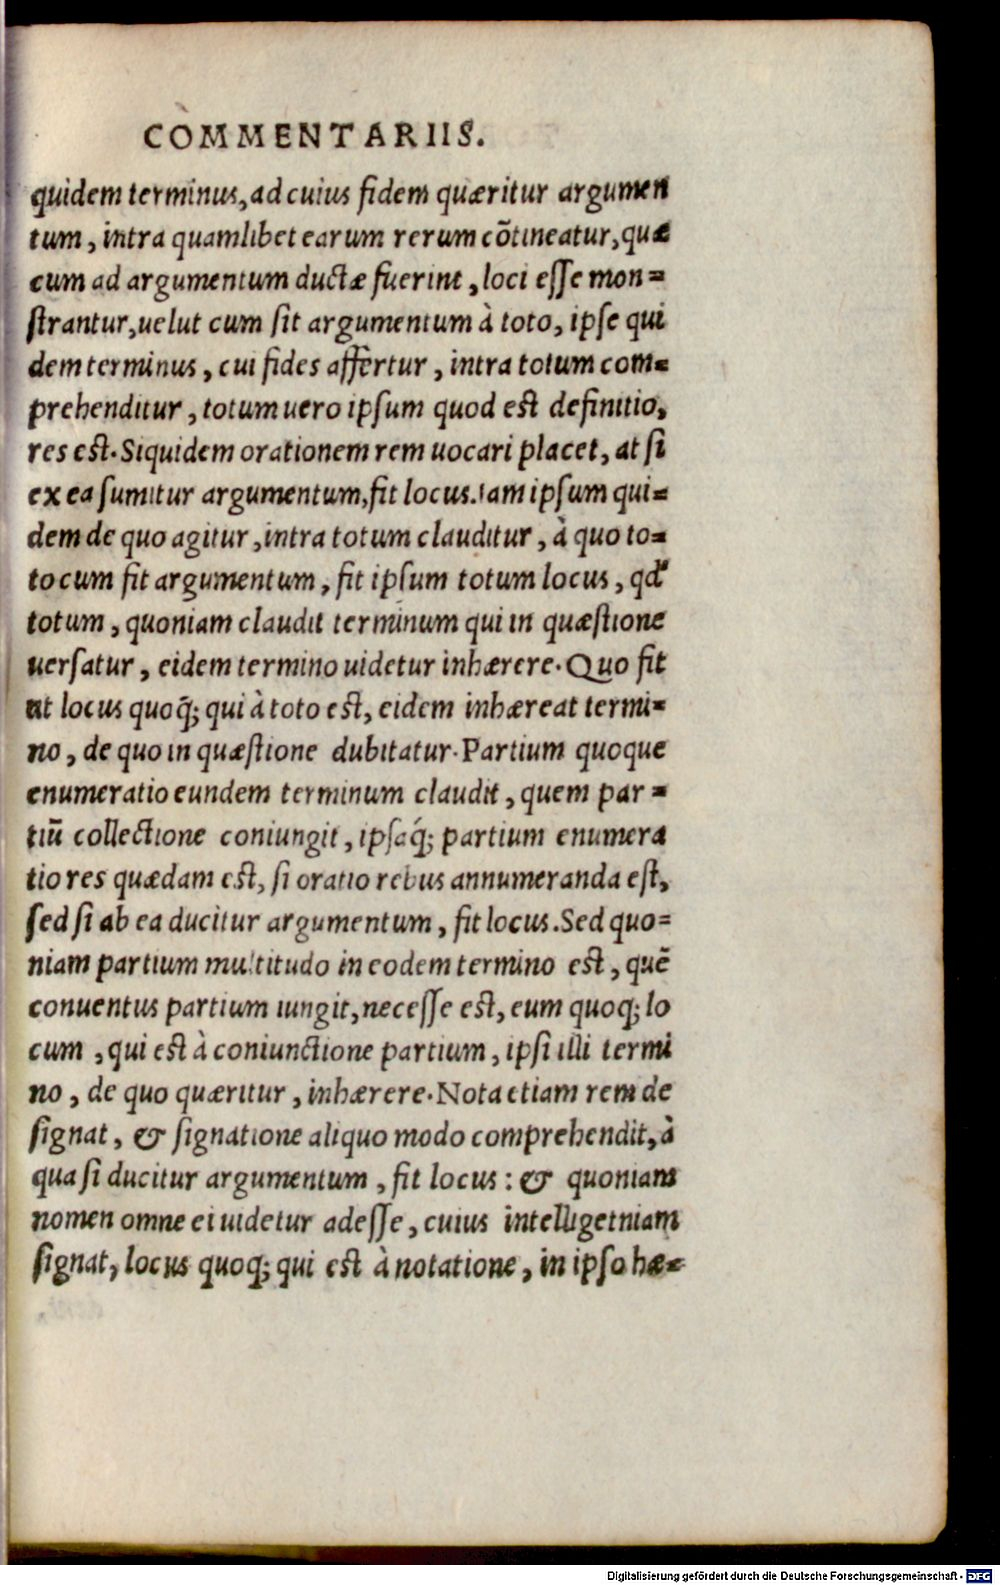 COMMENTARIIS.
quidem terminus, ad cuius fidem quæritur argumen
tum, intra quamlibet earum rerum cõtineatur, quæ
cum ad argumentum ductæ fuerint, loci esse mon=
strantur, uelut cum sit argumentum à toto, ipse qui
dem terminus, cui fides affertur, intra totum com=
prehenditur, totum uero ipsum quod est definitio,
res est. Siquidem orationem rem uocari placet, at si
ex ea sumitur argumentum, fit locus. Iam ipsum qui=
dem de quo agitur, intra totum clauditur, à quo to=
to cum fit argumentum, fit ipsum totum locus, qđ
totum, quoniam claudit terminum qui in quæstione
uersatur, eidem termino uidetur inhærere. Quo fit
ut locus quoq̃; qui à toto est, eidem inhæreat termi=
no, de quo in quæstione dubitatur. Partium quoque
enumeratio eundem terminum claudit, quem par=
tiũ collectione coniungit, ipsaq́; partium enumera
tio res quædam est, si oratio rebus annumeranda est,
sed si ab ea ducitur argumentum, fit locus. Sed quo=
niam partium multitudo in eodem termino est, quẽ
conuentus partium iungit, necesse est, eum quoq; lo
cum, qui est à coniunctione partium, ipsi illi termi
no, de quo quæritur, inhærere. Nota etiam rem de
signat, & signatione aliquo modo comprehendit, à
qua si ducitur argumentum, fit locus: & quoniam
nomen omne ei uidetur adesse, cuius intelligetniam
signat, locus quoq; qui est à notatione, in ipso hæ=
Digitalisierung gefördert durch die Deutsche Forschungsgemeinschaft - DFG